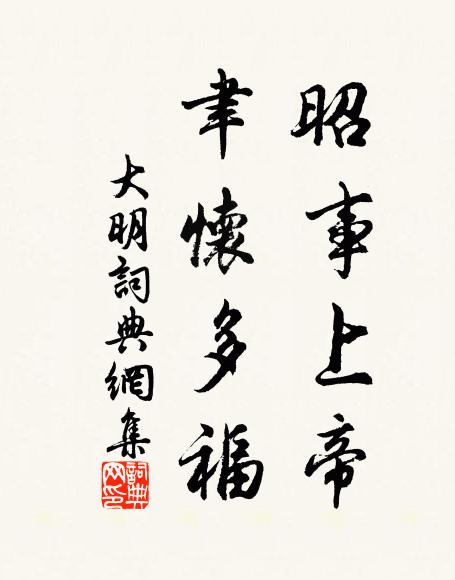 昭事上帝
聿懷多福
大明詞典網集
詞典網印